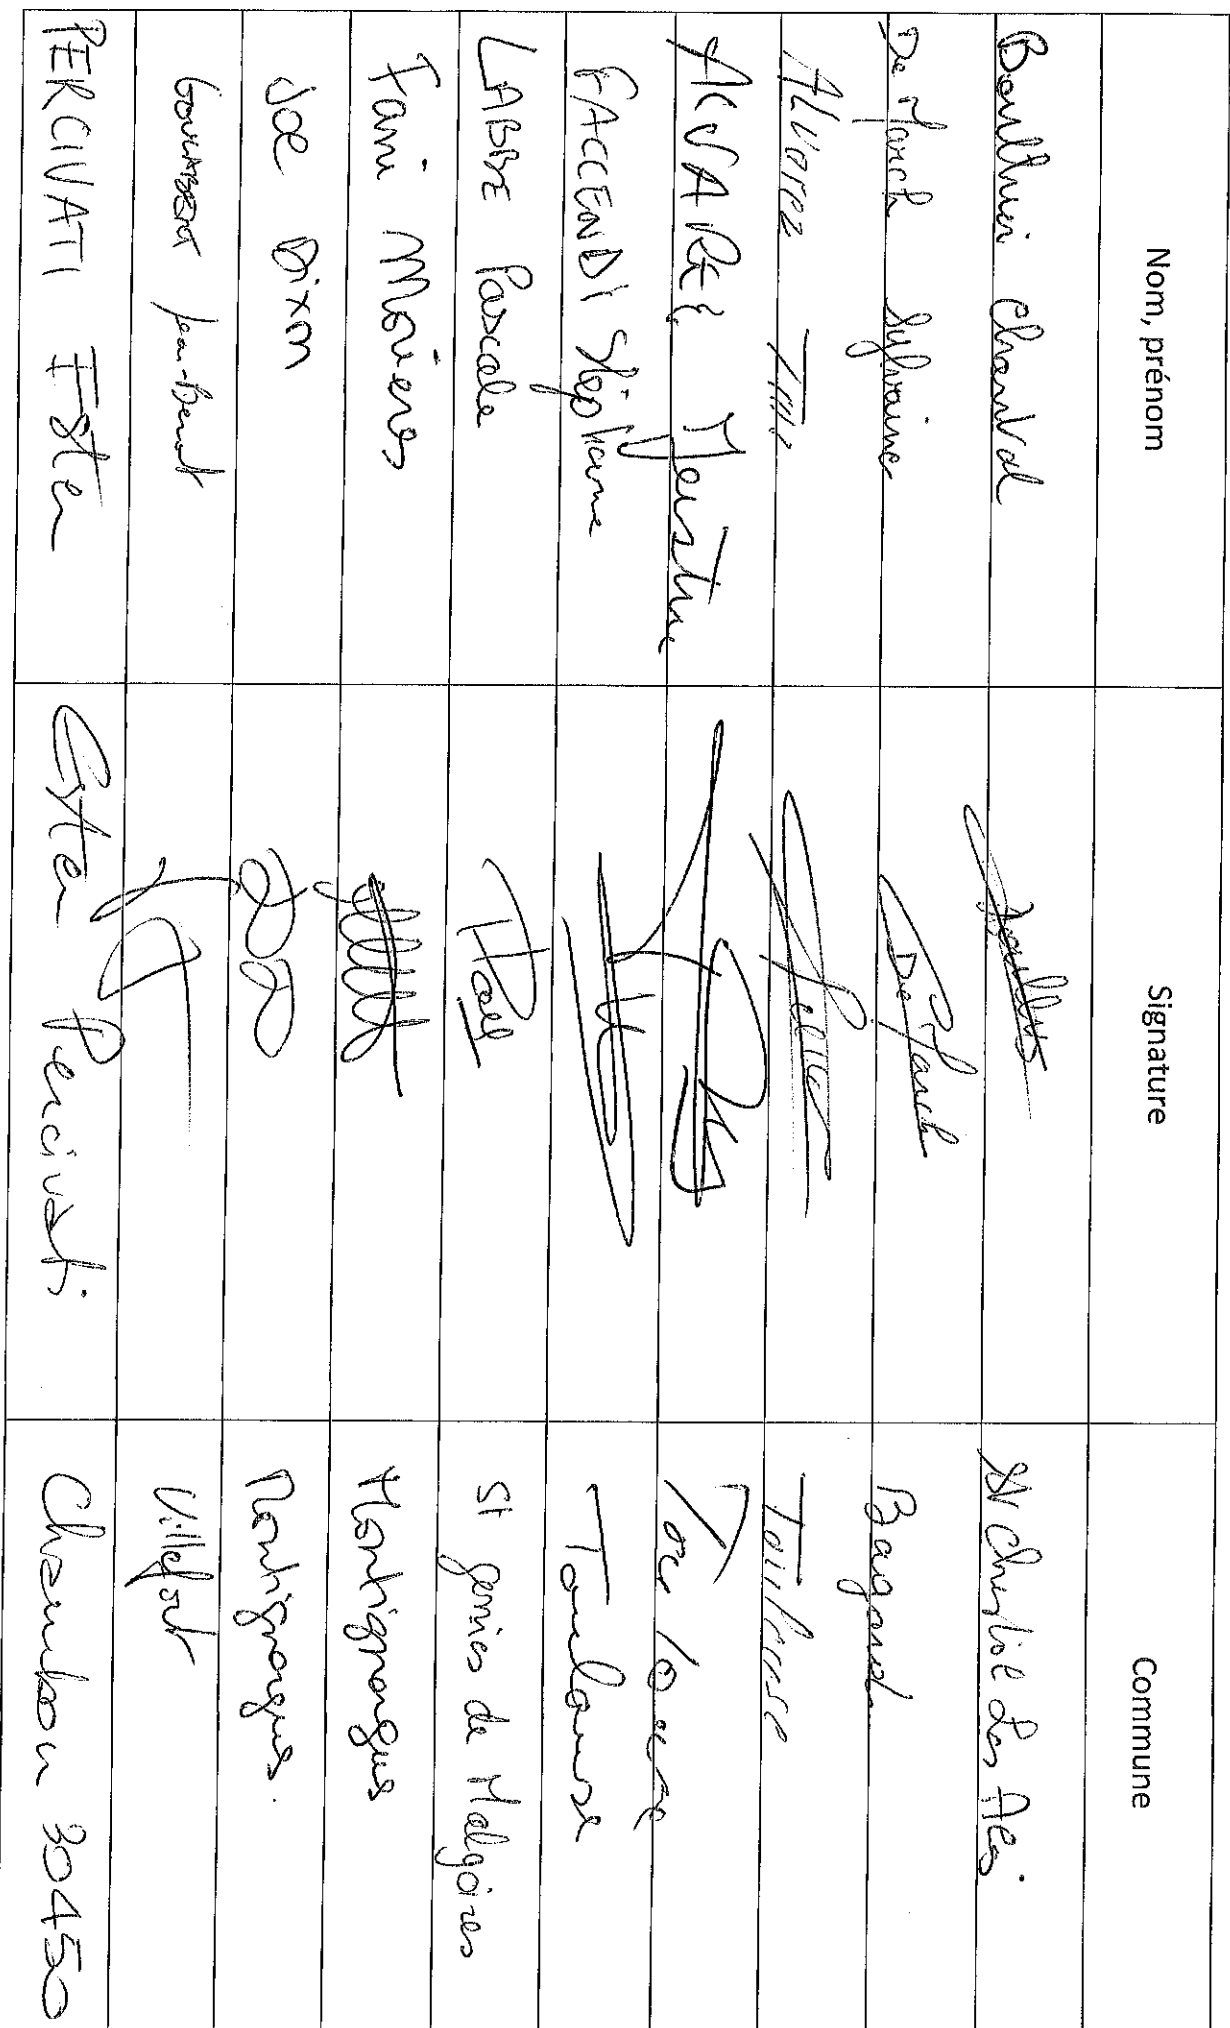 Nom, prénom Signature Commune
Boulhier Chantal St Christol les Ales
De March Sylvaine De March Bagard
Alvarez Toulouse
ALVAREZ Toulouse
FACCENDI Stéphanie Toulouse
LABBE Pascale St genies de Malgoires
Fami Movieres Martignargues
Joe Dixon Martignargues.
Jean-Benoit Villefort
PERCIVATI Ester Ester Percivati Chambon 30450